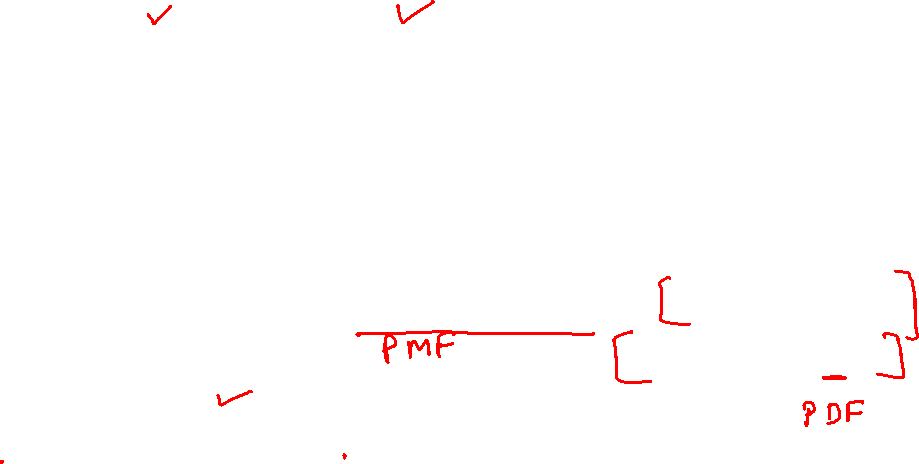 PMF
PDF